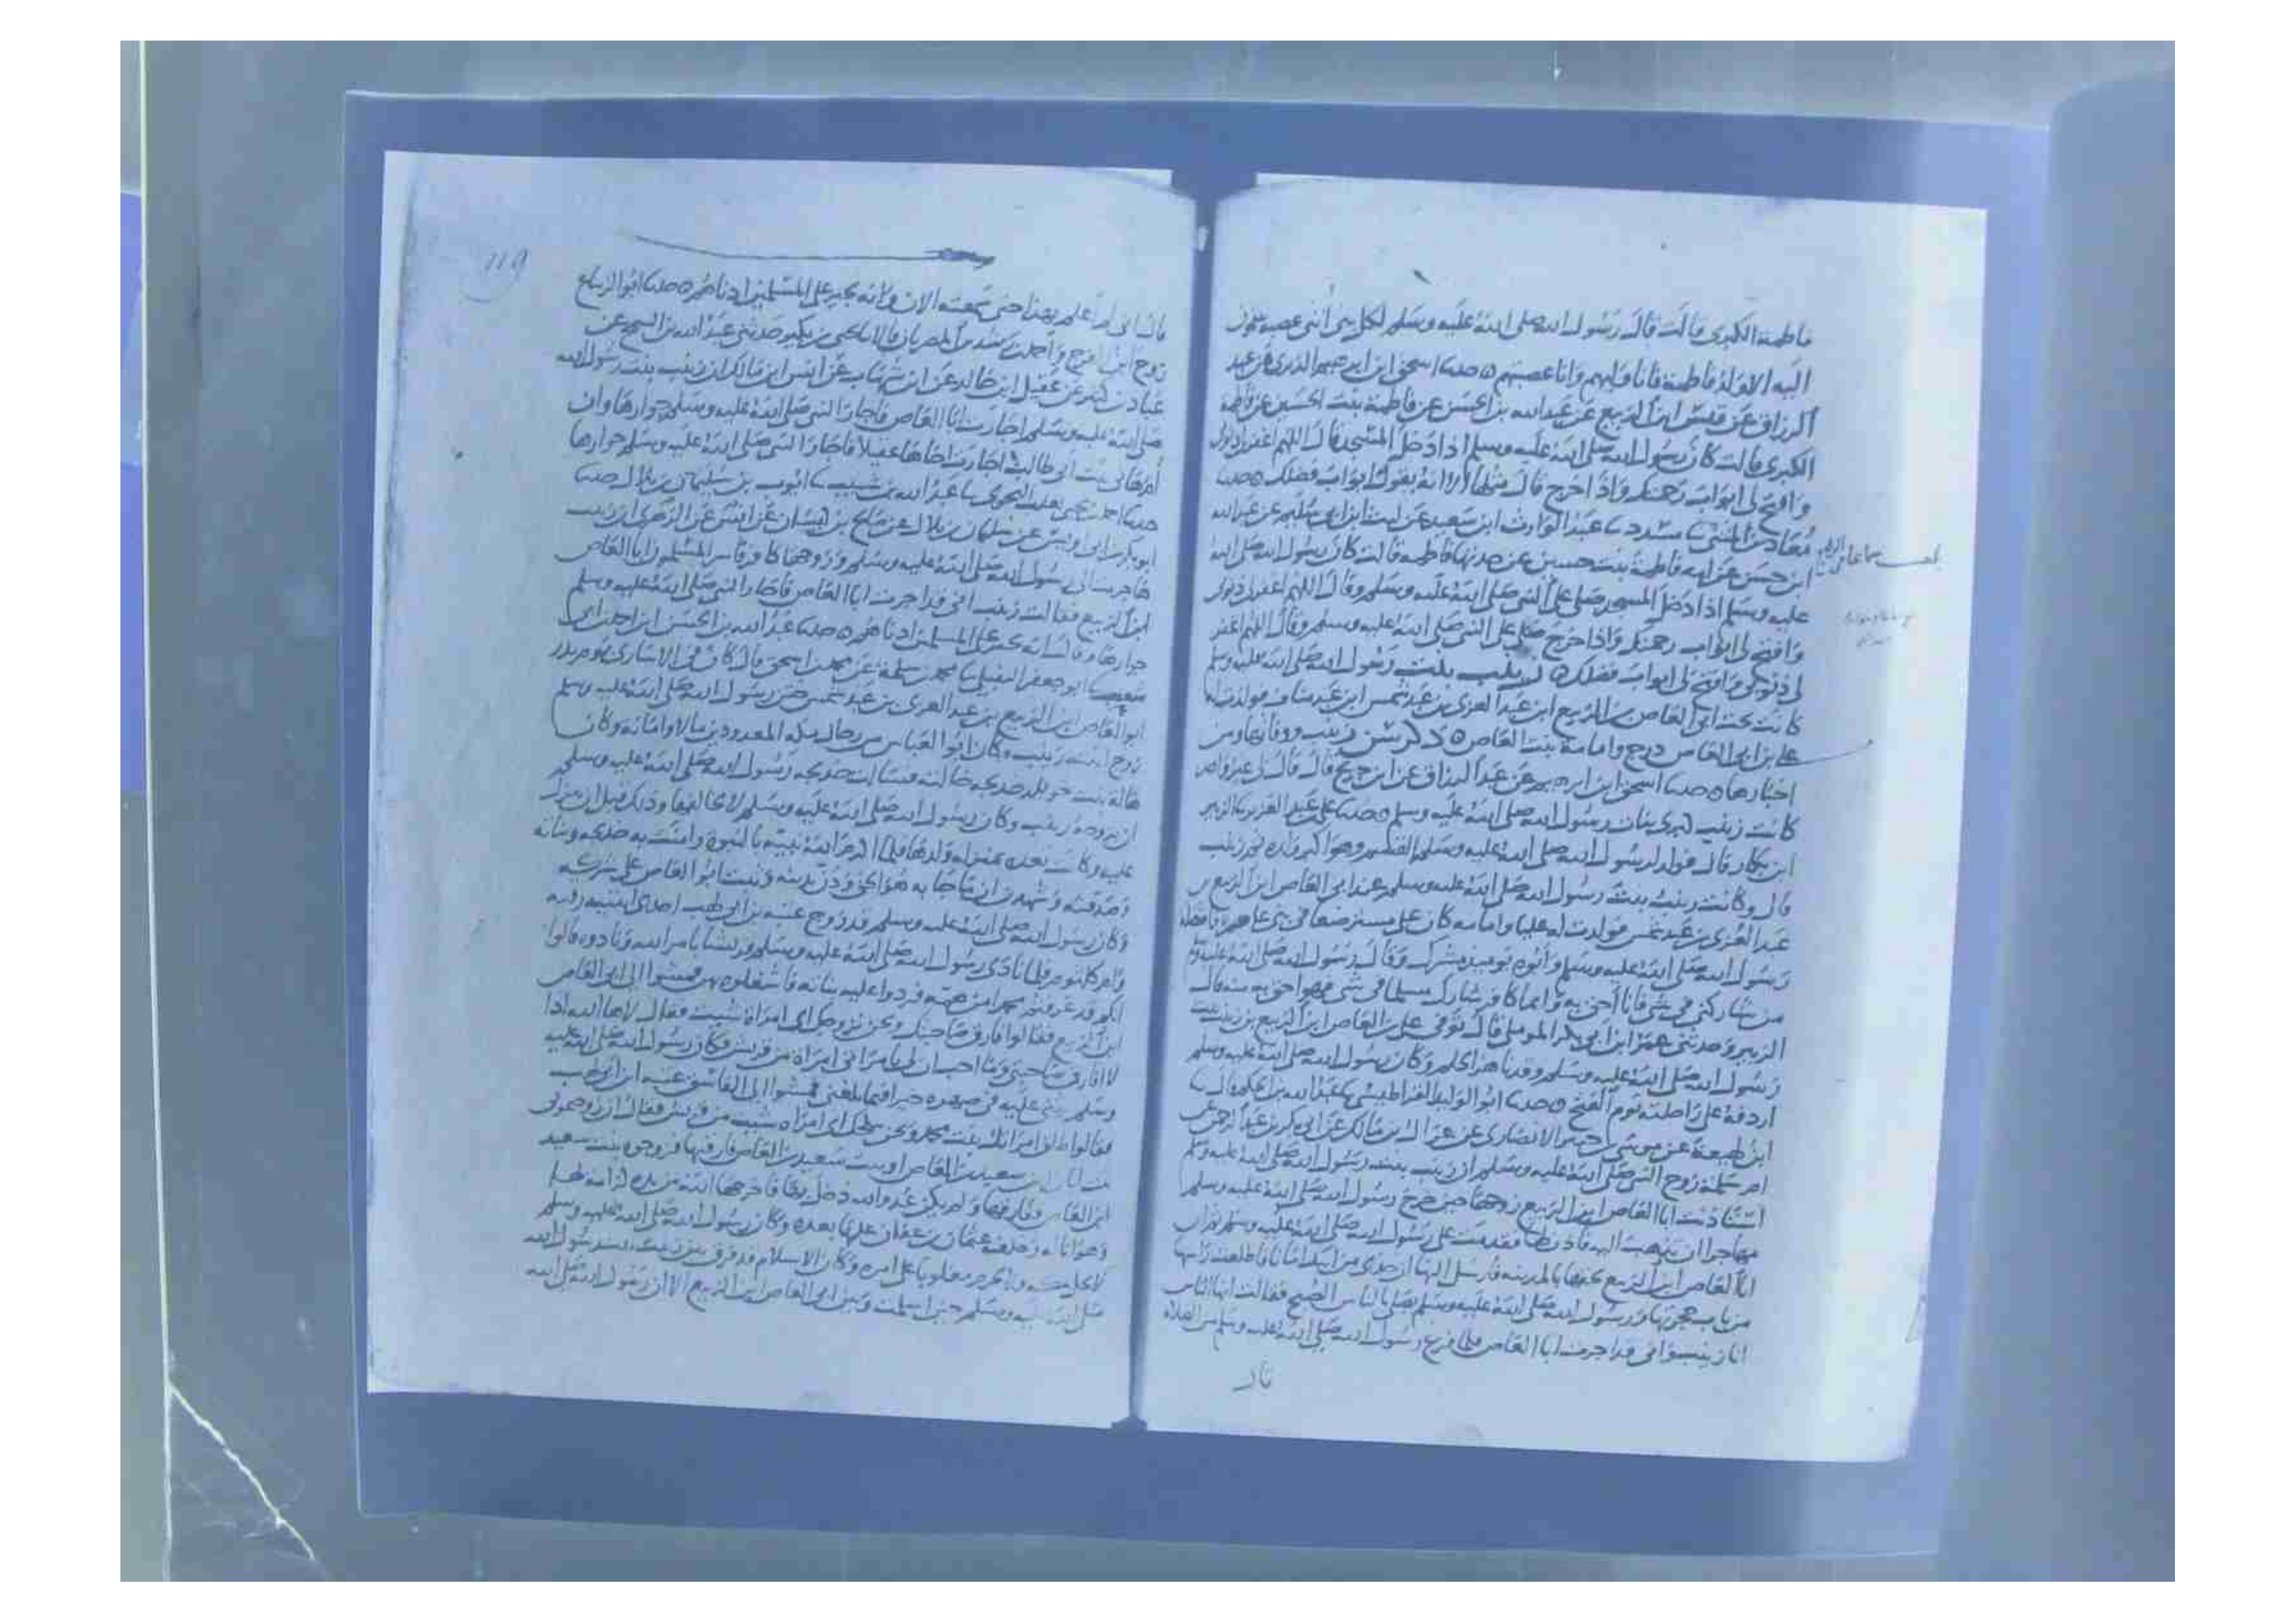 فاطمة الكبرى قالت قال رسول الله صلى الله عليه وسلم لكل بني أنثى عصبة ينتمون
اليه الا ولد فاطمة فانا وليهم وانا عصبتهم ه حدثنا اسحق ابن ابرهيم الدبري عن عبد
الرزاق عن قيس ابن الربيع عن عبد الله بن الحسن عن فاطمة بنت الحسين عن فاطمة
الكبرى قالت كان رسول الله صلى الله عليه وسلم اذا دخل المسجد قال اللهم اغفر لي ذنوبي
وافتح لي ابواب رحمتك واذا خرج قال مثلها الا انه يقول ابواب فضلك ه حدثنا
معاذ بن المثنى ثنا مسدد ثنا عبد الوارث ابن سعيد عن ليث ابن ابي سليم عن عبد الله
ابن حسن عن امه فاطمة بنت حسين عن جدتها فاطمة قالت كان رسول الله صلى الله
عليه وسلم اذا دخل المسجد صلى على النبي صلى الله عليه وسلم وقال اللهم اغفر لي ذنوبي
وافتح لي ابواب رحمتك واذا خرج صلى على النبي صلى الله عليه وسلم وقال اللهم اغفر
لي ذنوبي وافتح لي ابواب فضلك ه زينب بنت رسول الله صلى الله عليه وسلم
كانت تحت ابي العاص بن الربيع ابن عبد العزى بن عبد شمس ابن عبد مناف فولدت له
علي بن ابي العاص درج وامامة بنت العاص ه ذكر سن زينب ووفاتها ومن
اخبارها ه حدثنا اسحق ابن ابرهيم عن عبد الرزاق عن ابن جريج قال قال لي غير واحد
كانت زينب كبرى بنات رسول الله صلى الله عليه وسلم ه حدثنا علي عبد العزيز ثنا الزبير
ابن بكار قال فولد لرسول الله صلى الله عليه وسلم القسم وهو اكبر ولده ثم زينب
قال وكانت زينب بنت رسول الله صلى الله عليه وسلم عند ابي العاص ابن الربيع بن
عبد العزى بن عبد شمس فولدت له عليا وامامه كان علي مسترضعا في بني غاضرة فافتصله
رسول الله صلى الله عليه وسلم وأبوه يوميذ مشرك وقال رسول الله صلى الله عليه وسلم
من شاركني في شي فانا احق به وايما كافر شارك مسلما في شي فهو احق به منه قال
الزبير وحدثني عمر ابن ابي بكر الموملي قال توفي علي بن العاص ابن الربيع بن زينب بنت
رسول الله صلى الله عليه وسلم وقد ناهز الحلم وكان رسول الله صلى الله عليه وسلم
اردفه على راحلته يوم الفتح ه حدثنا ابو الوليد القراطيسي ثنا عبد الله بن الحكم قال ثنا
ابن لهيعة عن موسى بن جبير الانصاري عن عراك ابن مالك عن ابي بكر بن عبد الرحمن عن
ام سلمة زوج النبي صلى الله عليه وسلم ان زينب بنت رسول الله صلى الله عليه وسلم
استاذنت ابا العاص ابن الربيع زوجها حين خرج رسول الله صلى الله عليه وسلم
مهاجرا ان تذهب اليه فاذن لها فقدمت على رسول الله صلى الله عليه وسلم ثم ان
ابا العاص ابن الربيع لحقها بالمدينه فارسل اليها ان خذي من ابيك امانا فاطلعت راسها
من باب حجرتها ورسول الله صلى الله عليه وسلم يصلي بالناس الصبح فقالت ايها الناس
انا زينب واني قد اجرت ابا العاص فلما فرغ رسول الله صلى الله عليه وسلم من الصلاه
قال
119
قال اني لم أعلم بهذا حتى سمعته الان وانه يجير على المسلمين ادناهم ه حدثنا ابو الزنباع
روح ابن الفرج واحمد بن رشدين المصريان قالا ثنا يحيى بن بكير حدثني عبد الله بن السمح عن
عباد بن كثير عن عقيل ابن خالد عن ابن شهاب عن انس ابن مالك ان زينب بنت رسول الله
صلى الله عليه وسلم اجارت ابا العاص فاجاز النبي صلى الله عليه وسلم جوارها وان
أم هاني بنت ابي طالب اجارت اخاها عقيلا فاجاز النبي صلى الله عليه وسلم جوارها
حدثنا احمد بن يحيى ثعلب النحوي ثنا عبد الله بن شبيب ثنا ايوب بن سليمان بن بلال حدثنا
ابو بكر بن ابي اويس عن سليمان بن بلال عن صالح بن كيسان عن انس عن الزهري ان زينب
هاجرت الى رسول الله صلى الله عليه وسلم وزوجها كافر فاسر المسلمون ابا العاص
ابن الربيع فقالت زينب اني قد اجرت ابا العاص فاجاز النبي صلى الله عليه وسلم
جوارها وقال انه يجير على المسلمين ادناهم ه حدثنا عبد الله بن الحسن ابن احمد ابن ابي
شعيب ثنا ابو جعفر النفيلي ثنا محمد بن سلمة عن محمد بن اسحق قال كان في الاسارى يوم بدر
ابو العاص ابن الربيع بن عبد العزى بن عبد شمس ختن رسول الله صلى الله عليه وسلم
زوج ابنته زينب وكان ابو العباس من رجال مكه المعدودين مالا وامانه وكان
هالة بنت خويلد خديجه خالته فسالت خديجه رسول الله صلى الله عليه وسلم
ان يزوجه زينب وكان رسول الله صلى الله عليه وسلم لا يخالفها وذلك قبل ان ينزل
عليه وكانت تعده بمنزله ولدها فلما اكرم الله نبيه بالنبوة وامنت به خديجه وبناته
وصدقنه وشهدن ان ما جا به هو الحق ودن بدينه وثبت ابو العاص على شركه
وكان رسول الله صلى الله عليه وسلم قد زوج عتبه بن ابي لهب احدى ابنتيه رقيه
وام كلثوم فلما نادى رسول الله صلى الله عليه وسلم قريشا بامر الله ونادوه قالوا
انكم قد فرغتم محمدا من همه فردوا عليه بناته فاشغلوه بهن فمشوا الى ابي العاص
ابن الربيع فقالوا فارق صاحبتك ونحن نزوجك اي امراة شيت فقال لا ها الله اذا
لا افارق صاحبتي وما احب ان لي بامراتي امراة من قريش وكان رسول الله صلى الله عليه
وسلم يثني عليه في صهره خيرا فيما بلغني فمشوا الى الفاسق عتبه ابن ابي لهب
فقالوا طلق امراتك بنت محمد ونحن ننكحك اي امراه شيت من قريش فقال ان زوجتموني
بنت ابان بن سعيد بن العاص او بنت سعيد بن العاص فارقتها فزوجوه بنت سعيد
ابن العاص وفارقها ولم يكن عدو الله دخل بها فاخرجها الله من يده كرامة لها
وهوانا له وخلف عثمان بن عفان عليها بعده وكان رسول الله صلى الله عليه وسلم
لا يحل بمكه ولا يحرم مغلوبا على امره وكان الاسلام قد فرق بين زينب بنت رسول الله
صلى الله عليه وسلم حين اسلمت وبين ابي العاص ابن الربيع الا ان رسول الله صلى الله